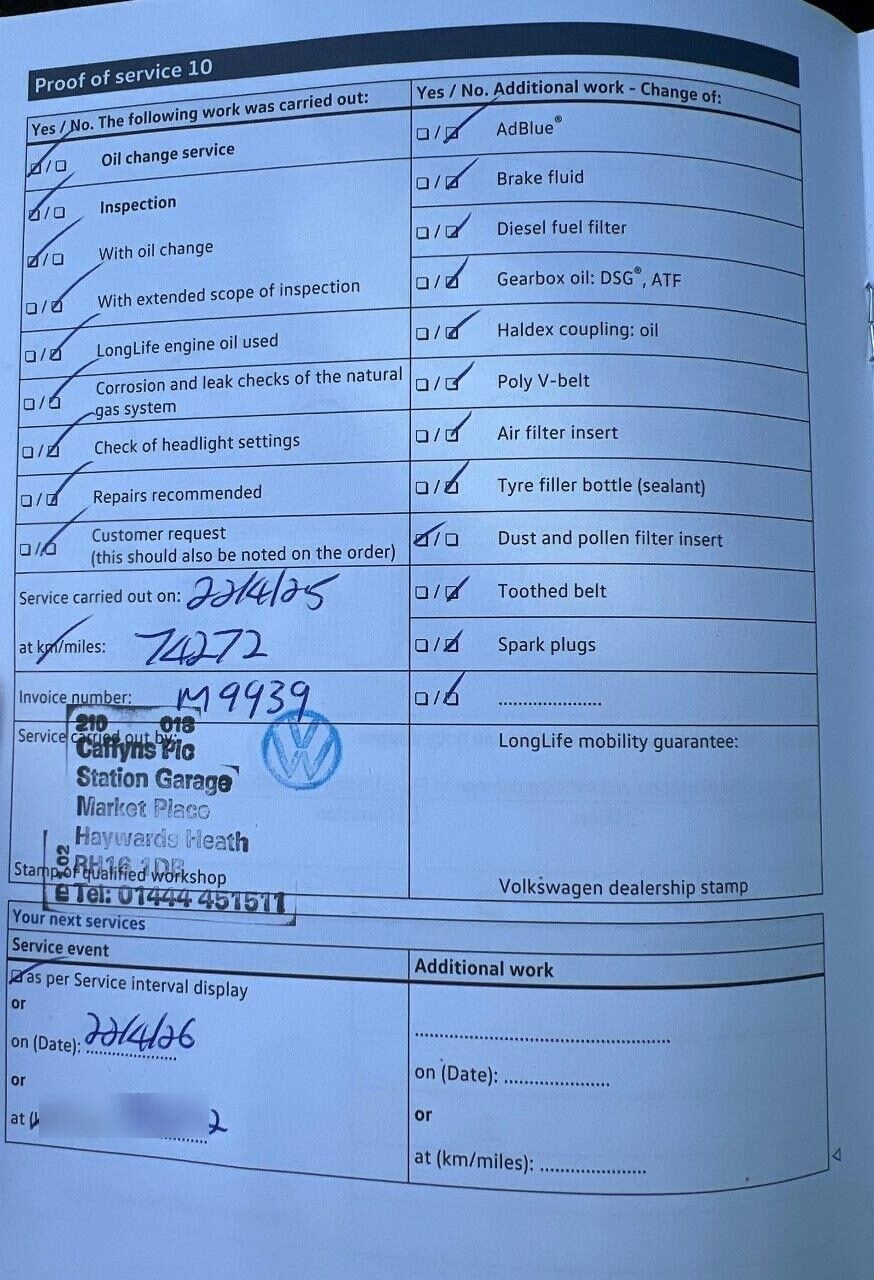 Proof of service 10
Yes / No. The following work was carried out:
Oil change service
Inspection
With oil change
With extended scope of inspection
LongLife engine oil used
Corrosion and leak checks of the natural
gas system
Check of headlight settings
Repairs recommended
Customer request
(this should also be noted on the order)
Service carried out on: 22/4/25
at km/miles: 74272
Invoice number: M9939
Service carried out by:
210 018
Caffyns Plc
Station Garage
Market Place
Haywards Heath
RH16 1DB
Tel: 01444 451511
Stamp of qualified workshop
VW
Yes / No. Additional work - Change of:
AdBlue®
Brake fluid
Diesel fuel filter
Gearbox oil: DSG®, ATF
Haldex coupling: oil
Poly V-belt
Air filter insert
Tyre filler bottle (sealant)
Dust and pollen filter insert
Toothed belt
Spark plugs
LongLife mobility guarantee:
Volkswagen dealership stamp
Your next services
Service event
as per Service interval display
or
on (Date): 22/4/26
or
at
2
Additional work
on (Date):
or
at (km/miles):